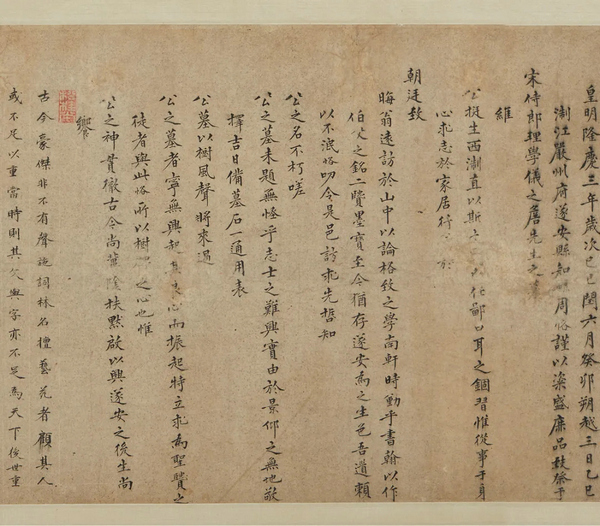 皇明隆慶三年歲次己巳閏六月癸卯朔越三日乙巳
浙江嚴州府遂安縣知周恪謹以粢盛庶品致祭于
宋侍郎理學儀之詹先生之
維
公挺生西浙直以斯任鄙口耳之錮習惟從事于身
心求志於家居行於
朝廷致
晦翁遠訪於山中以論格致之學南軒時勤手書翰以作
伯父之銘二賢墨寶至今猶存遂安為之生色吾道賴
以不泯恪叨令是邑訪求先哲知
公之名不朽嗟
公之墓未題無怪乎志士之難興實由於景仰之無地敬
擇吉日備墓石一通用表
公墓以樹風聲將來過
公之墓者寧無興起其良心而振起特立求為聖賢之
徒者與此恪所以樹之心也惟
公之神貫徹古今尚冀陰扶默啟以興遂安之後生尚
饗
古今豪傑非不有聲施詞林名擅藝苑者顧其人
或不足以重當時則其文與字亦不足為天下後世重